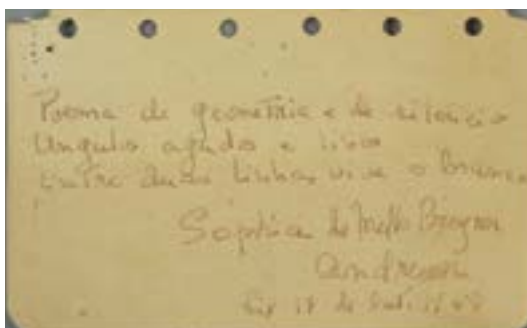 Poema de geometria e de silêncio
Ângulos agudos e lisos
Entre duas linhas vive o branco
Sophia de Mello Breyner
Andresen
17 de